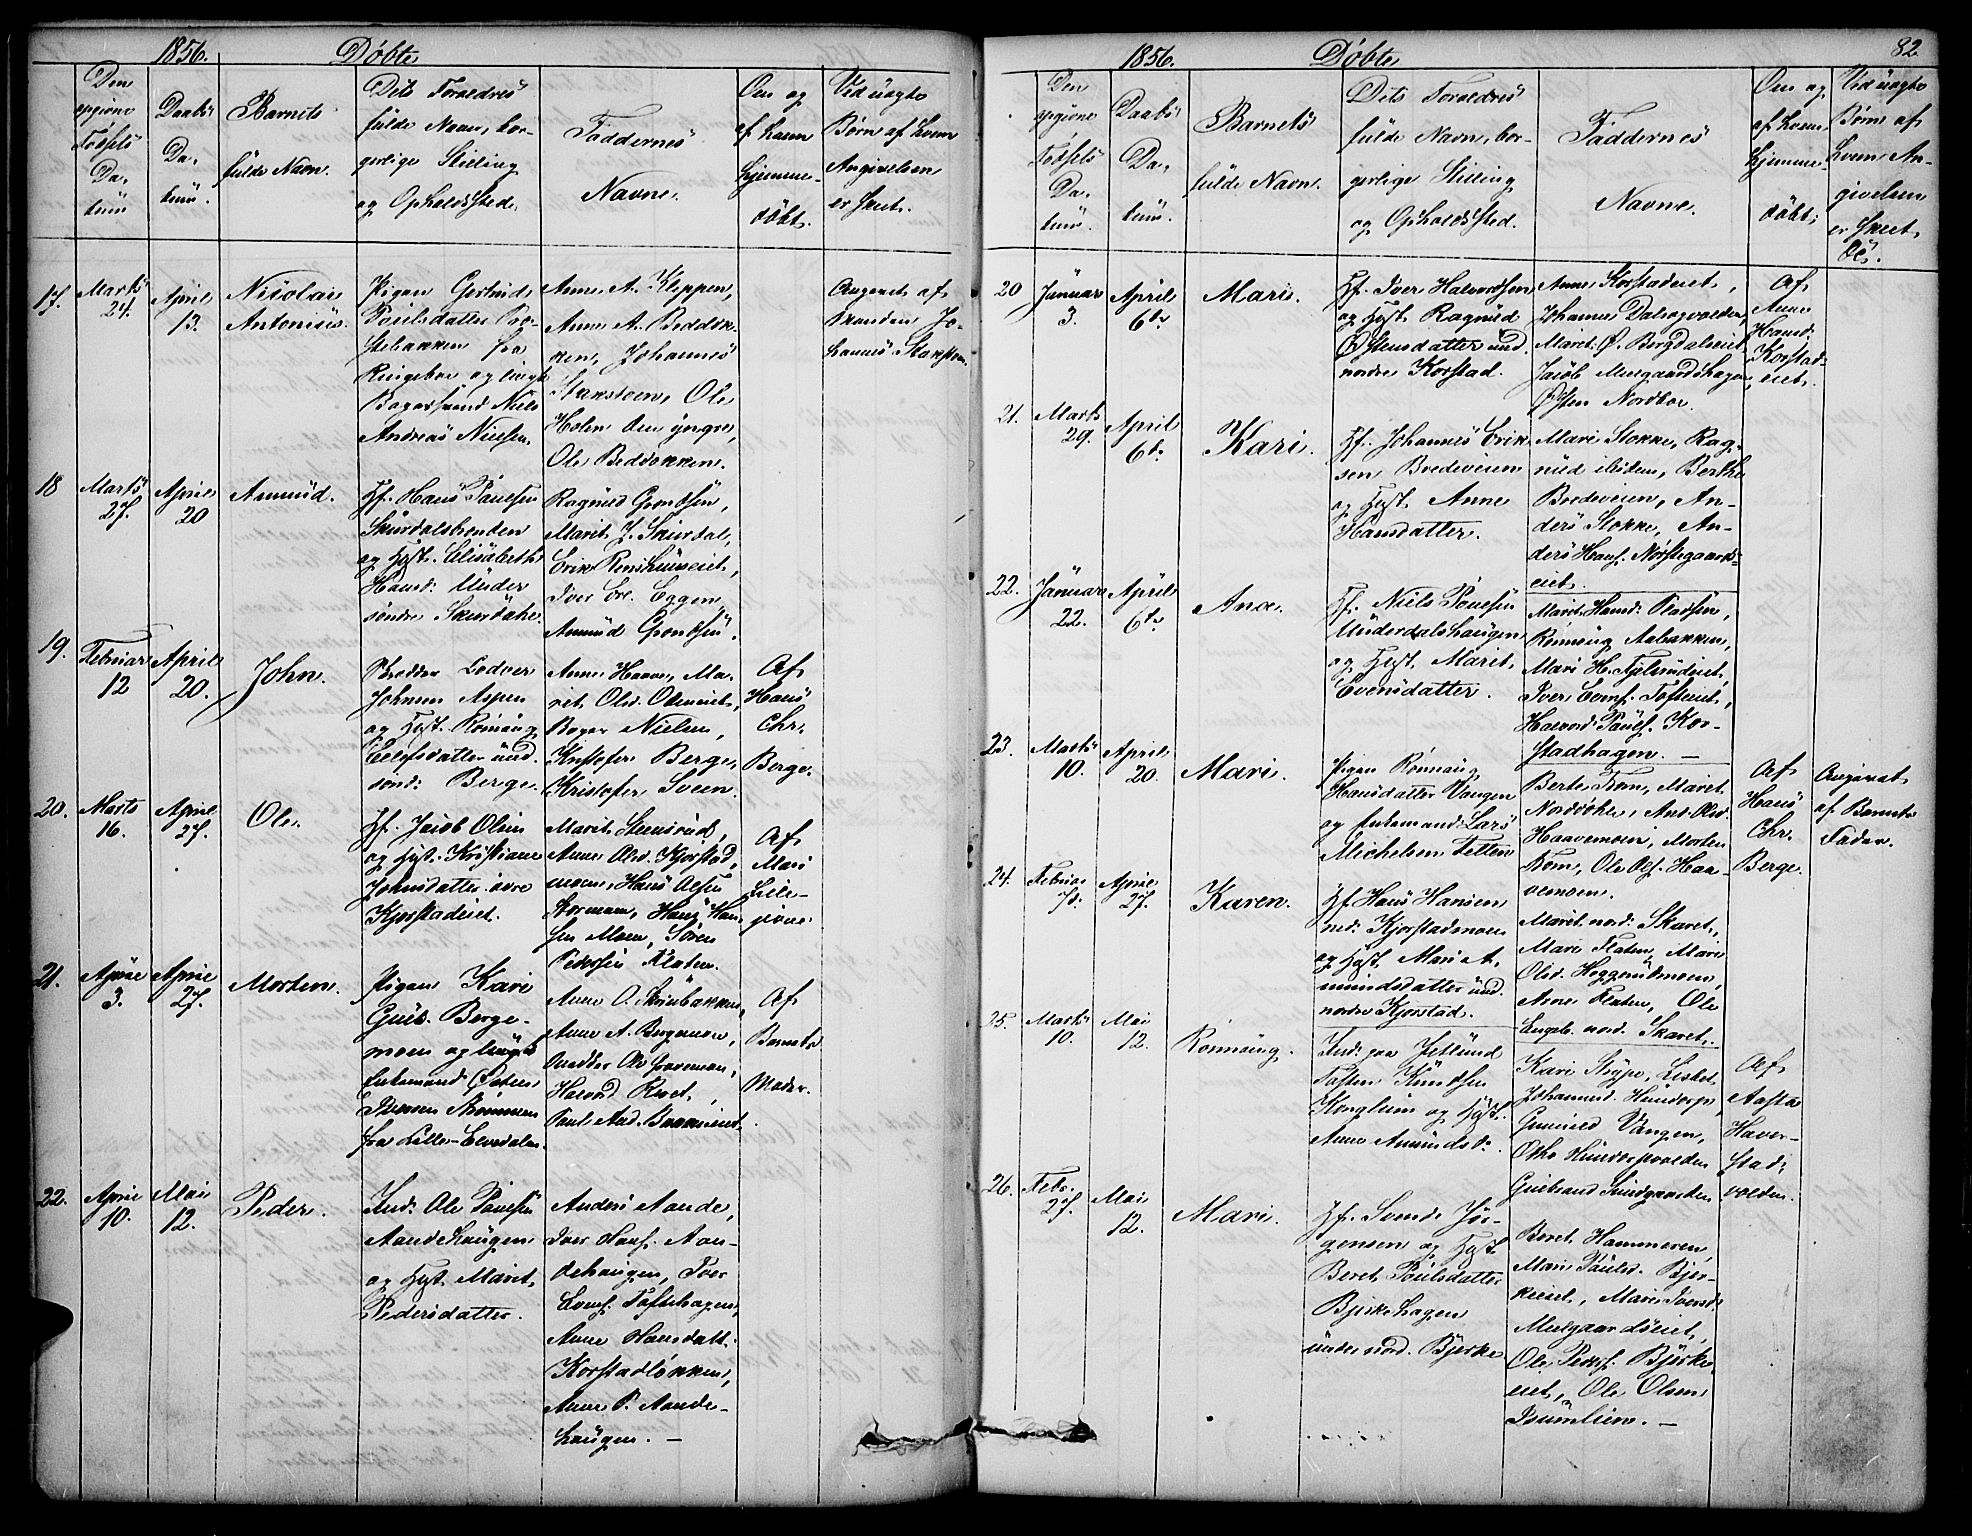 1856. Døbte
Den opgivne Fødsels Datum
Daabs Datum.
Barnets fulde Navn.
Dets Foraeldres fulde Navn, borgerlige Stilling og Opholdssted.
Faddernes Navne.
Om og af hvem hjemmedøbt.
Ved uægte Børn af hvem Angivelsen er skeet.
17. Marts 24. April 13.
Nicolai
Antonius.
Pigen Gertrud
Poulsdatter
fra
Ringeboe og
Niels
Andreas Nielsen.
Anne A. Kleppen,
Anne A. Beddok-
ken, Johannes
Ole
Holen den yngre,
Ole Beddokken.
Angivet af
Jo-
hannes
18 Marts 27. April 20
Amund.
Hf. Hans Paulsen
Skurdalsbrenden
og Hst. Elisabeth
Hansd: under
søndre Skurdahl.
Ragnild Grondsen,
Marit J. Skurdal,
Erik
Iver Ere. Eggen,
Amund Grondsen.
19. Februar 12 April 20.
John.
Johnsen Aspen
og Hst. Rønnaug
und.
sønd: Berge.
Anne Haave, Ma-
rit Olsd.
Nielsen,
Kristofer Berge,
Kristofer Sveen.
Af
Hans
Chr.
Berge.
20. Marts 16. April 27.
Ole.
Hf. Jacob Olsen
og Hst. Kristiane
Johnsdatter øvre
Kjorstadeiet.
Marit Steensrud,
Anne Olsd. Kjorstad-
moen, Hans Olsen
Stormoen, Hans Han-
sen Moen, Søren
Pedersen Flaten.
Af
Mari
Lille-
gione
21. April 3. April 27.
Morten.
Pigen Kari
Gulb. Berge-
moen og
Østen
Iversen
fra Lille-Elvedalen.
Anne O. Skrinbakken,
Anne A. Bergemoen,
Halvord
Poul And.
Af
Barnets
Moder.
22. April 10. Mai 12.
Peder.
Ind. Ole Paulsen
Aandehaugen
og Hst. Marit
Pedersdatter.
Anders Aande,
Iver Hans. Aan-
dehaugen, Iver
Evens. Toftehagen,
Anne Hansdatt.
Korstadløkken,
Anne P. Aande-
haugen. —
1856. Døbte 82.
Den opgivne Fødsels Datum.
Daabs Datum.
Barnets fulde Navn.
Dets Foraeldres fulde Navn, borgerlige Stilling og Opholdssted.
Faddernes Navne.
Om og af hvem hjemmedøbt.
Ved uægte Børn af hvem Angivelsen er skeet.
20 Januar 3. April 6te
Mari.
Hf. Iver Halvordsen
og Hst. Ragnild
Østensdatter und.
nordre Korstad.
Anne Korstadeiet,
Johanne Dalsegvolden,
Marit Ø. Bergdalseiet
Jacob Melgaardshagen,
Østen Nordboe.
Af
Anne
Hansd:
Korstad-
eiet.
21. Marts 29. April 6te
Kari.
Hf. Johannes Erik-
sen Bredeveien
og Hst. Anne
Hansdatter.
Mari Stokke, Rag-
nild ibidem, Berthe
Bredeveien, An-
ders Stokke, An-
ders Hans. Nørstegaards-
eiet.
22. Januar 22. April 6te
Ane.
Hf. Niels Povelsen
Underdalshaugen
og Hst. Marit
Evensdatter.
Marit Hansd: Pladsen,
Rønnaug Aabakken,
Mari H.
Iver Evens. Tofteeiet,
Halvord Pauls. Kor-
stadhagen. —
23. Marts 10. April 20.
Mari.
Pigen Rønnaug
Hansdatter Vangen
og Enkemand Lars
Michelsen Fetten
Berte Trøm, Marit
And. Olsd.
Haavemoen, Morten
Trøm, Ole Ols. Haa-
vemoen.
Af
Hans
Chr.
Berge.
Angivet
af Barnets
Fader.
24. Februar April 27.
Karen.
Hf. Hans Hansen
ned. Kjorstadmoen
og Hst. Mari A-
mundsdatter und.
nordre Kjorstad.
Marit nord: Skaret,
Mari Flaten, Mari
Olsd. Heggerudmoen,
Arne Flaten, Ole
Engeb. nord. Skaret.
25. Marts 10. Mai 12.
Rønnaug.
Ind: paa Jetlund
Tosten Knudsen
Kongslien og Hst.
Anne Amundsd:
Kari Stype, Lisbet
Johannesd. Hundorp,
Gunild Vangen,
Otho Hundorpvolden
Gulbrand Sundgaarden
Af
Aasta
Haver-
stad-
volden.
26. Febr. 27. Mai 12.
Mari.
Hf. Svend Jør-
gensen og Hst.
Beret Poulsdatter
Bjerkehagen
under nord. Bjerke
Beret Hammeren,
Mari Poulsd. Bjer-
keeiet, Mari Iversd:
Melgaardseiet,
Ole Peders. Bjerke-
eiet, Ole Olsen
Isumlien. —